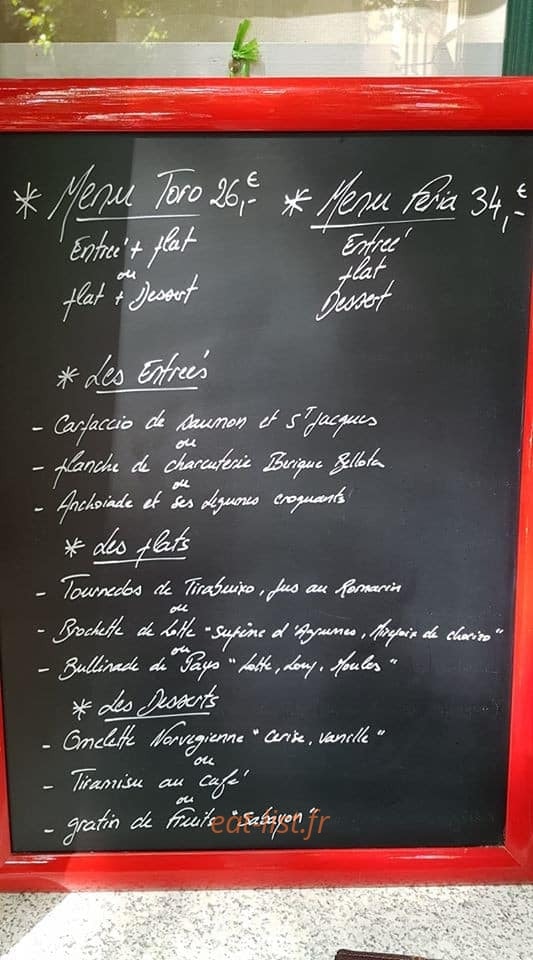 * Menu Toro 26,-€ * Menu Feria 34,-€
Entreé + plat
ou
plat + Dessert
Entreé
plat
Dessert
* Les Entreés
- Carpaccio de Saumon et St Jacques
ou
- planche de charcuterie Iberique Bellota
ou
- Anchoiade et ses légumes croquants
* Les plats
- Tournedos de Tirabuixo, jus au Romarin
ou
- Brochette de Lotte "Suprème d'Agrumes, Mirepoix de chorizo"
ou
- Bullinade du Pays "Lotte, Loup, Moules"
* Les Desserts
- Omelette Norvegienne "Cerise, vanille"
ou
- Tiramisu au Café
ou
- gratin de Fruits "Sabayon"
eat-list.fr